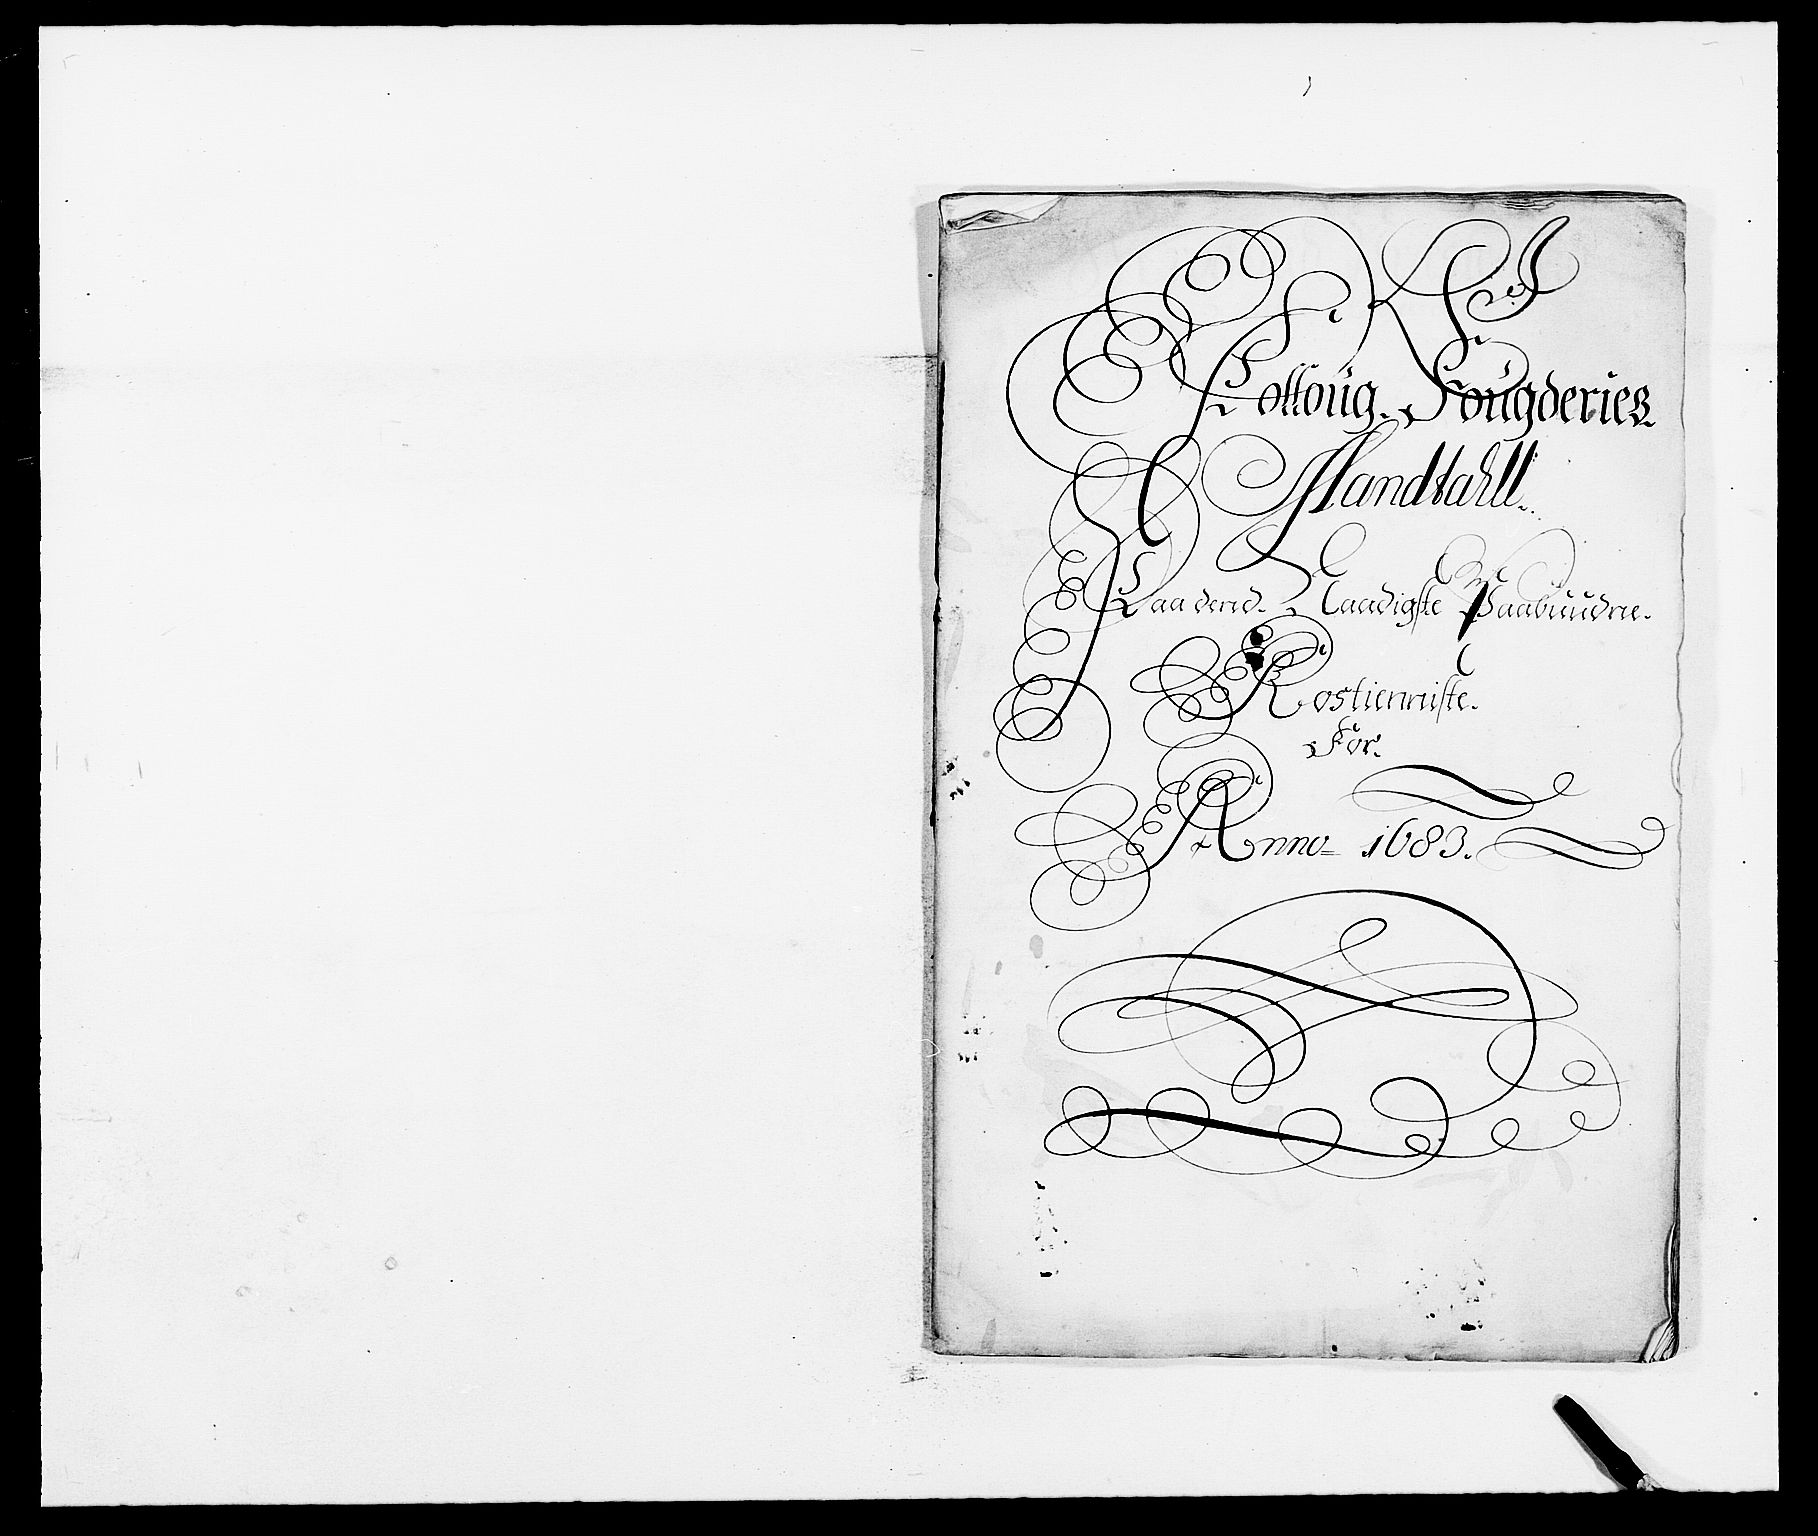 Folloüg. Foügderies.
Mandtahll.
Paa dend. Naadigste Paabuüdne.
Kostienniste.
For.
Anno= 1683.